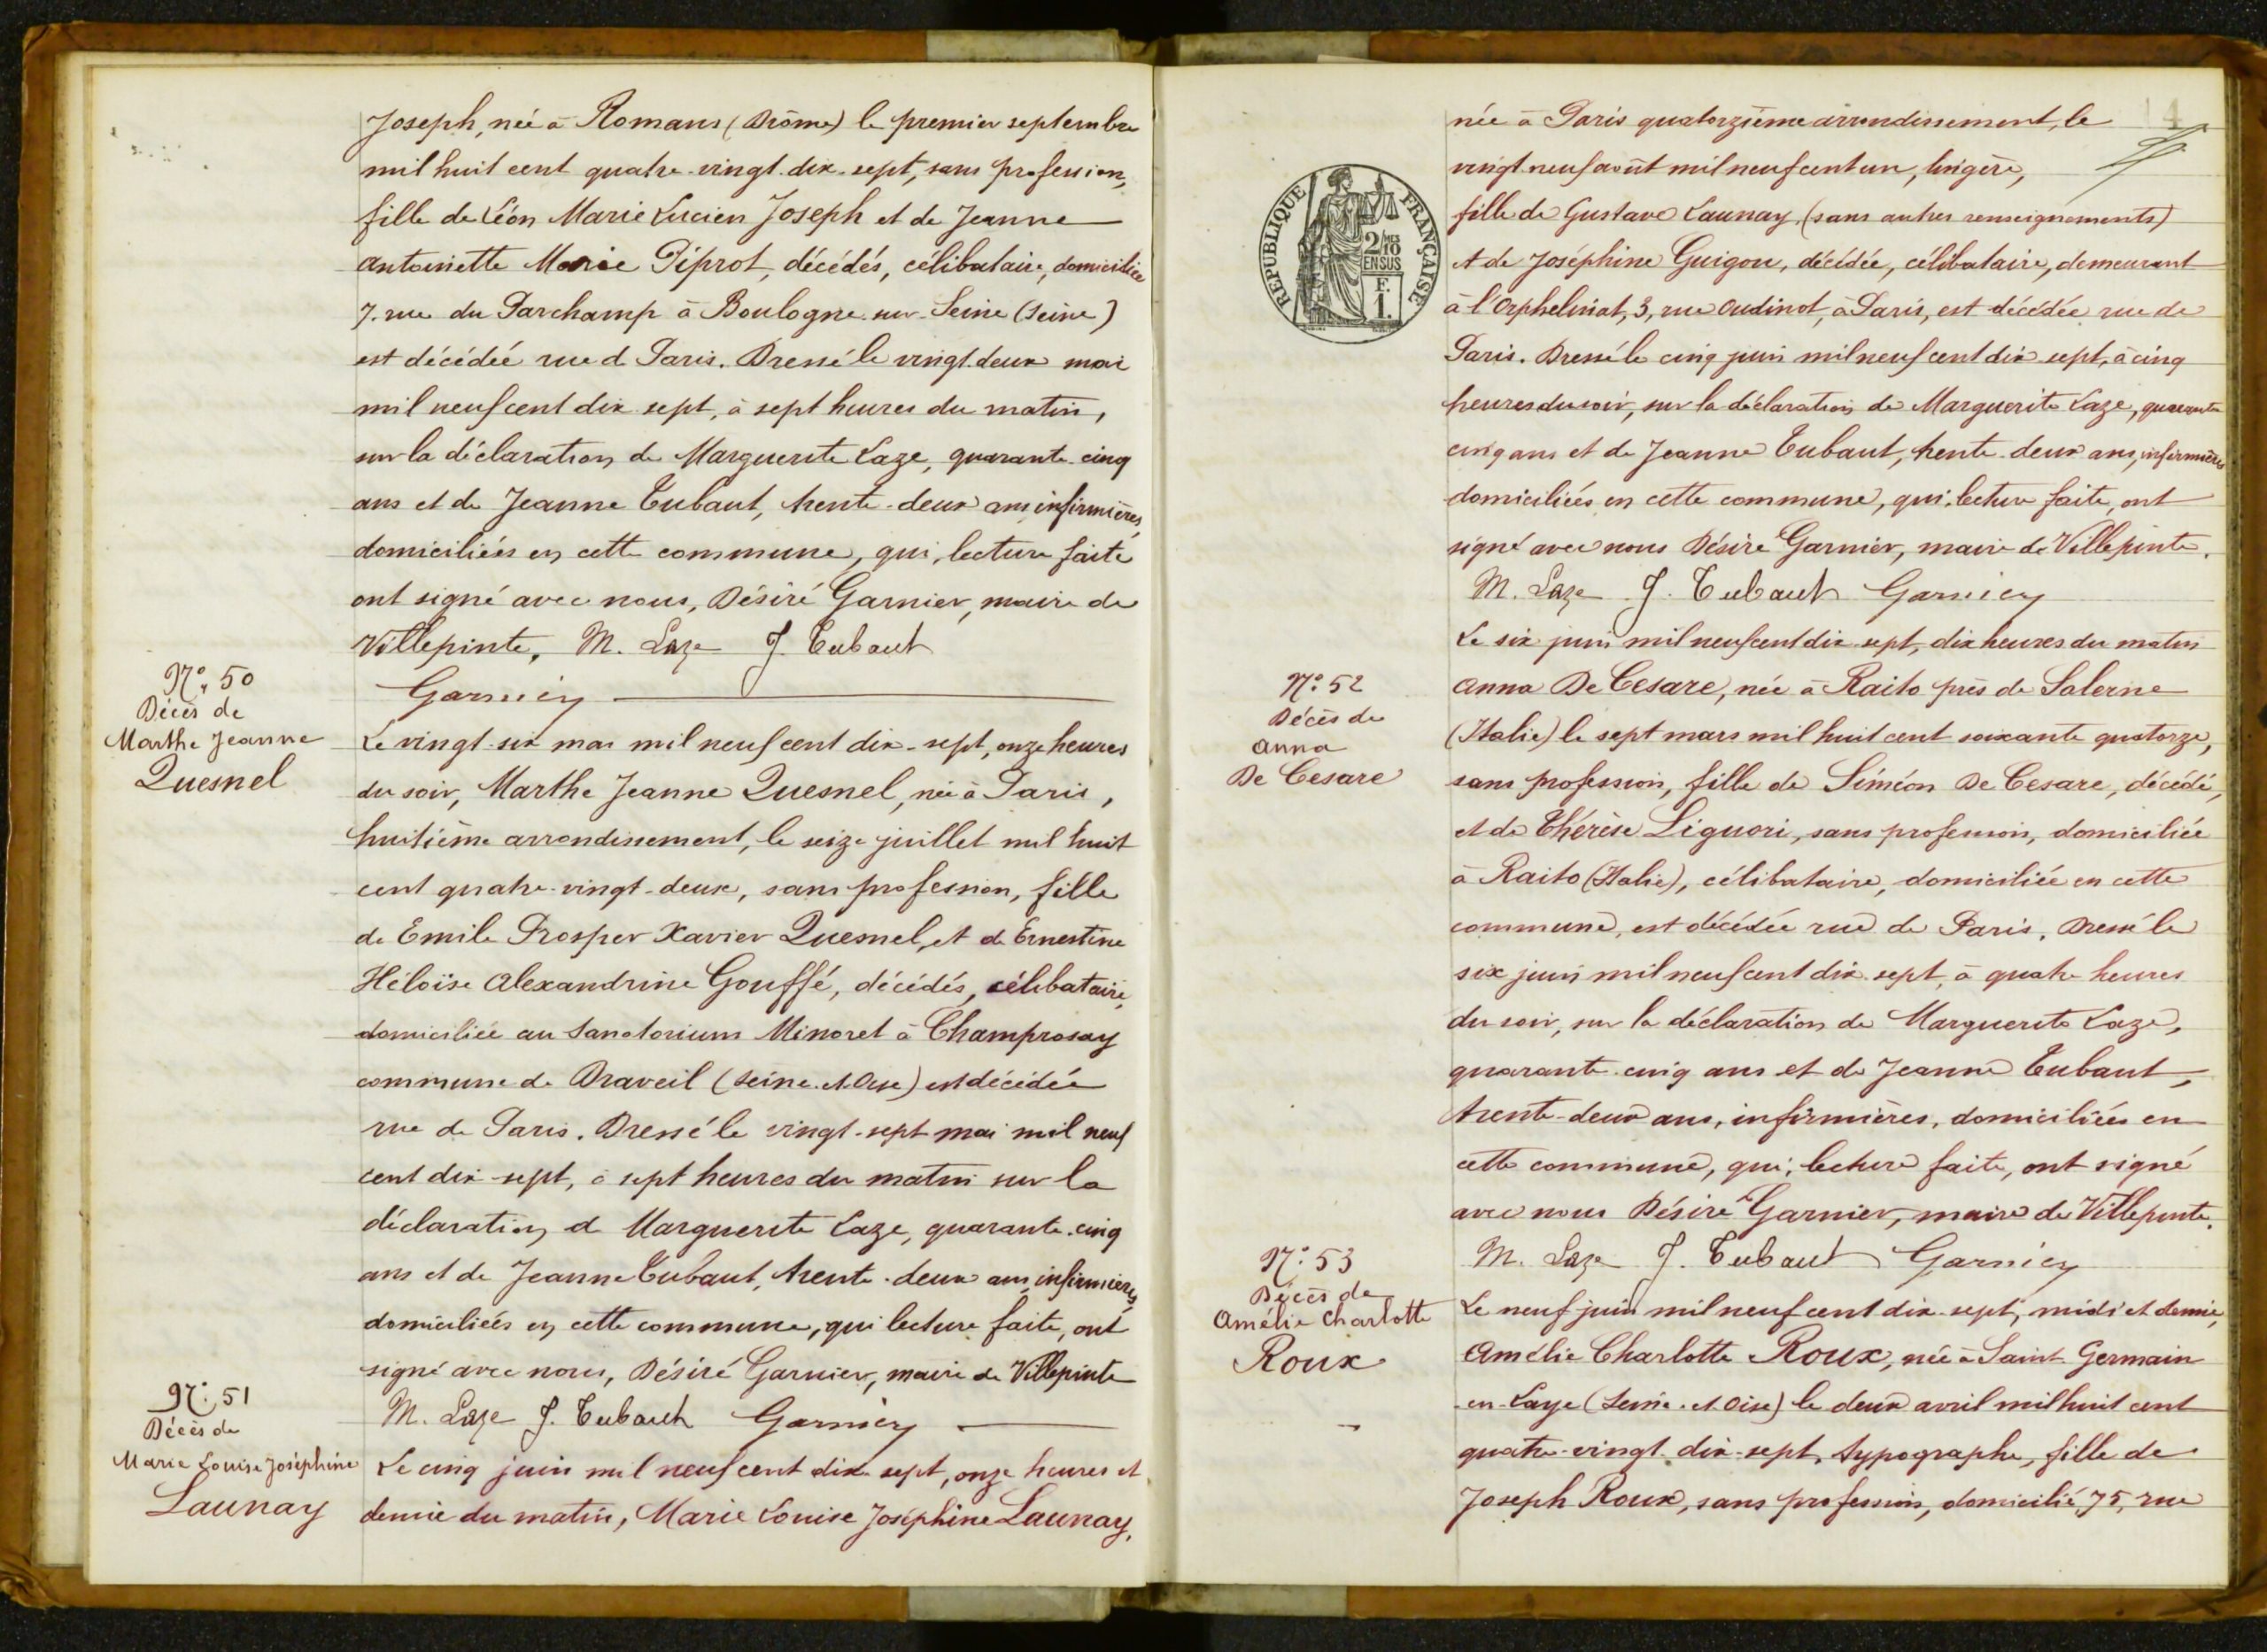 Joseph, née à Romans (Drôme) le premier septembre
mil huit cent quatre-vingt-dix-sept, sans profession,
fille de Léon Marie Lucien Joseph et de Jeanne
Antoinette Marie Piprot, décédés, célibataire, domiciliée
7. rue du Parchamp à Boulogne-sur-Seine (Seine)
est décédée rue de Paris. Dressé le vingt-deux mai
mil neuf cent dix sept, à sept heures du matin,
sur la déclaration de Marguerite Laze, quarante-cinq
ans et de Jeanne Tubaut, trente-deux ans infirmières,
domiciliées en cette commune, qui, lecture faite
ont signé avec nous, Désiré Garnier, maire de
Villepinte. M. Laze J. Tubaut
Garnier
N° 50
Décès de
Marthe Jeanne
Quesnel
Le vingt-six mai mil neuf cent dix-sept, onze heures
du soir, Marthe Jeanne Quesnel, née à Paris,
huitième arrondissement, le seize juillet mil huit
cent quatre-vingt-deux, sans profession, fille
de Emile Prosper Xavier Quesnel, et de Ernestine
Héloïse Alexandrine Gouffé, décédés, célibataire,
domiciliée au Sanatorium Minoret à Champrosay
commune de Draveil (Seine-et-Oise) est décédée
rue de Paris. Dressé le vingt-sept mai mil neuf
cent dix-sept, à sept heures du matin sur la
déclaration de Marguerite Laze, quarante-cinq
ans et de Jeanne Tubaut, trente-deux ans, infirmières,
domiciliées en cette commune, qui lecture faite, ont
signé avec nous, Désiré Garnier, maire de Villepinte
M. Laze J. Tubaut Garnier
N° 51
Décès de
Marie Louise Joséphine
Launay
Le cinq juin mil neuf cent dix-sept, onze heures et
demie du matin, Marie Louise Joséphine Launay,
14
née à Paris quatorzième arrondissement, le
vingt-neuf août mil neuf cent un, lingère,
fille de Gustave Launay, (sans autres renseignements)
et de Joséphine Guigou, décédée, célibataire, demeurant
à l'Orphelinat, 3, rue Oudinot, à Paris, est décédée rue de
Paris. Dressé le cinq juin mil neuf cent dix-sept, à cinq
heures du soir, sur la déclaration de Marguerite Laze, quarante
cinq ans et de Jeanne Tubaut, trente-deux ans, infirmières
domiciliées en cette commune, qui, lecture faite, ont
signé avec nous Désiré Garnier, maire de Villepinte.
M. Laze J. Tubaut Garnier
RÉPUBLIQUE FRANÇAISE
2/10MES
EN SUS
F.
1.
N° 52
Décès de
Anna
De Cesare
Le six juin mil neuf cent dix-sept, dix heures du matin
Anna De Cesare, née à Raito près de Salerne
(Italie) le sept mars mil huit cent soixante quatorze,
sans profession, fille de Siméon De Cesare, décédé,
et de Thérèse Liguori, sans profession, domiciliée
à Raito (Italie), célibataire, domiciliée en cette
commune, est décédée rue de Paris. Dressé le
six juin mil neuf cent dix-sept, à quatre heures
du soir, sur la déclaration de Marguerite Laze,
quarante-cinq ans et de Jeanne Tubaut,
trente-deux ans, infirmières, domiciliées en
cette commune, qui, lecture faite, ont signé
avec nous Désiré Garnier, maire de Villepinte.
M. Laze J. Tubaut Garnier
N° 53
Décès de
Amélie Charlotte
Roux
Le neuf juin mil neuf cent dix-sept, midi et demie,
Amélie Charlotte Roux, née à Saint-Germain
-en-Laye (Seine-et-Oise) le deux avril mil huit cent
quatre-vingt-dix-sept, typographe, fille de
Joseph Roux, sans profession, domicilié 75, rue